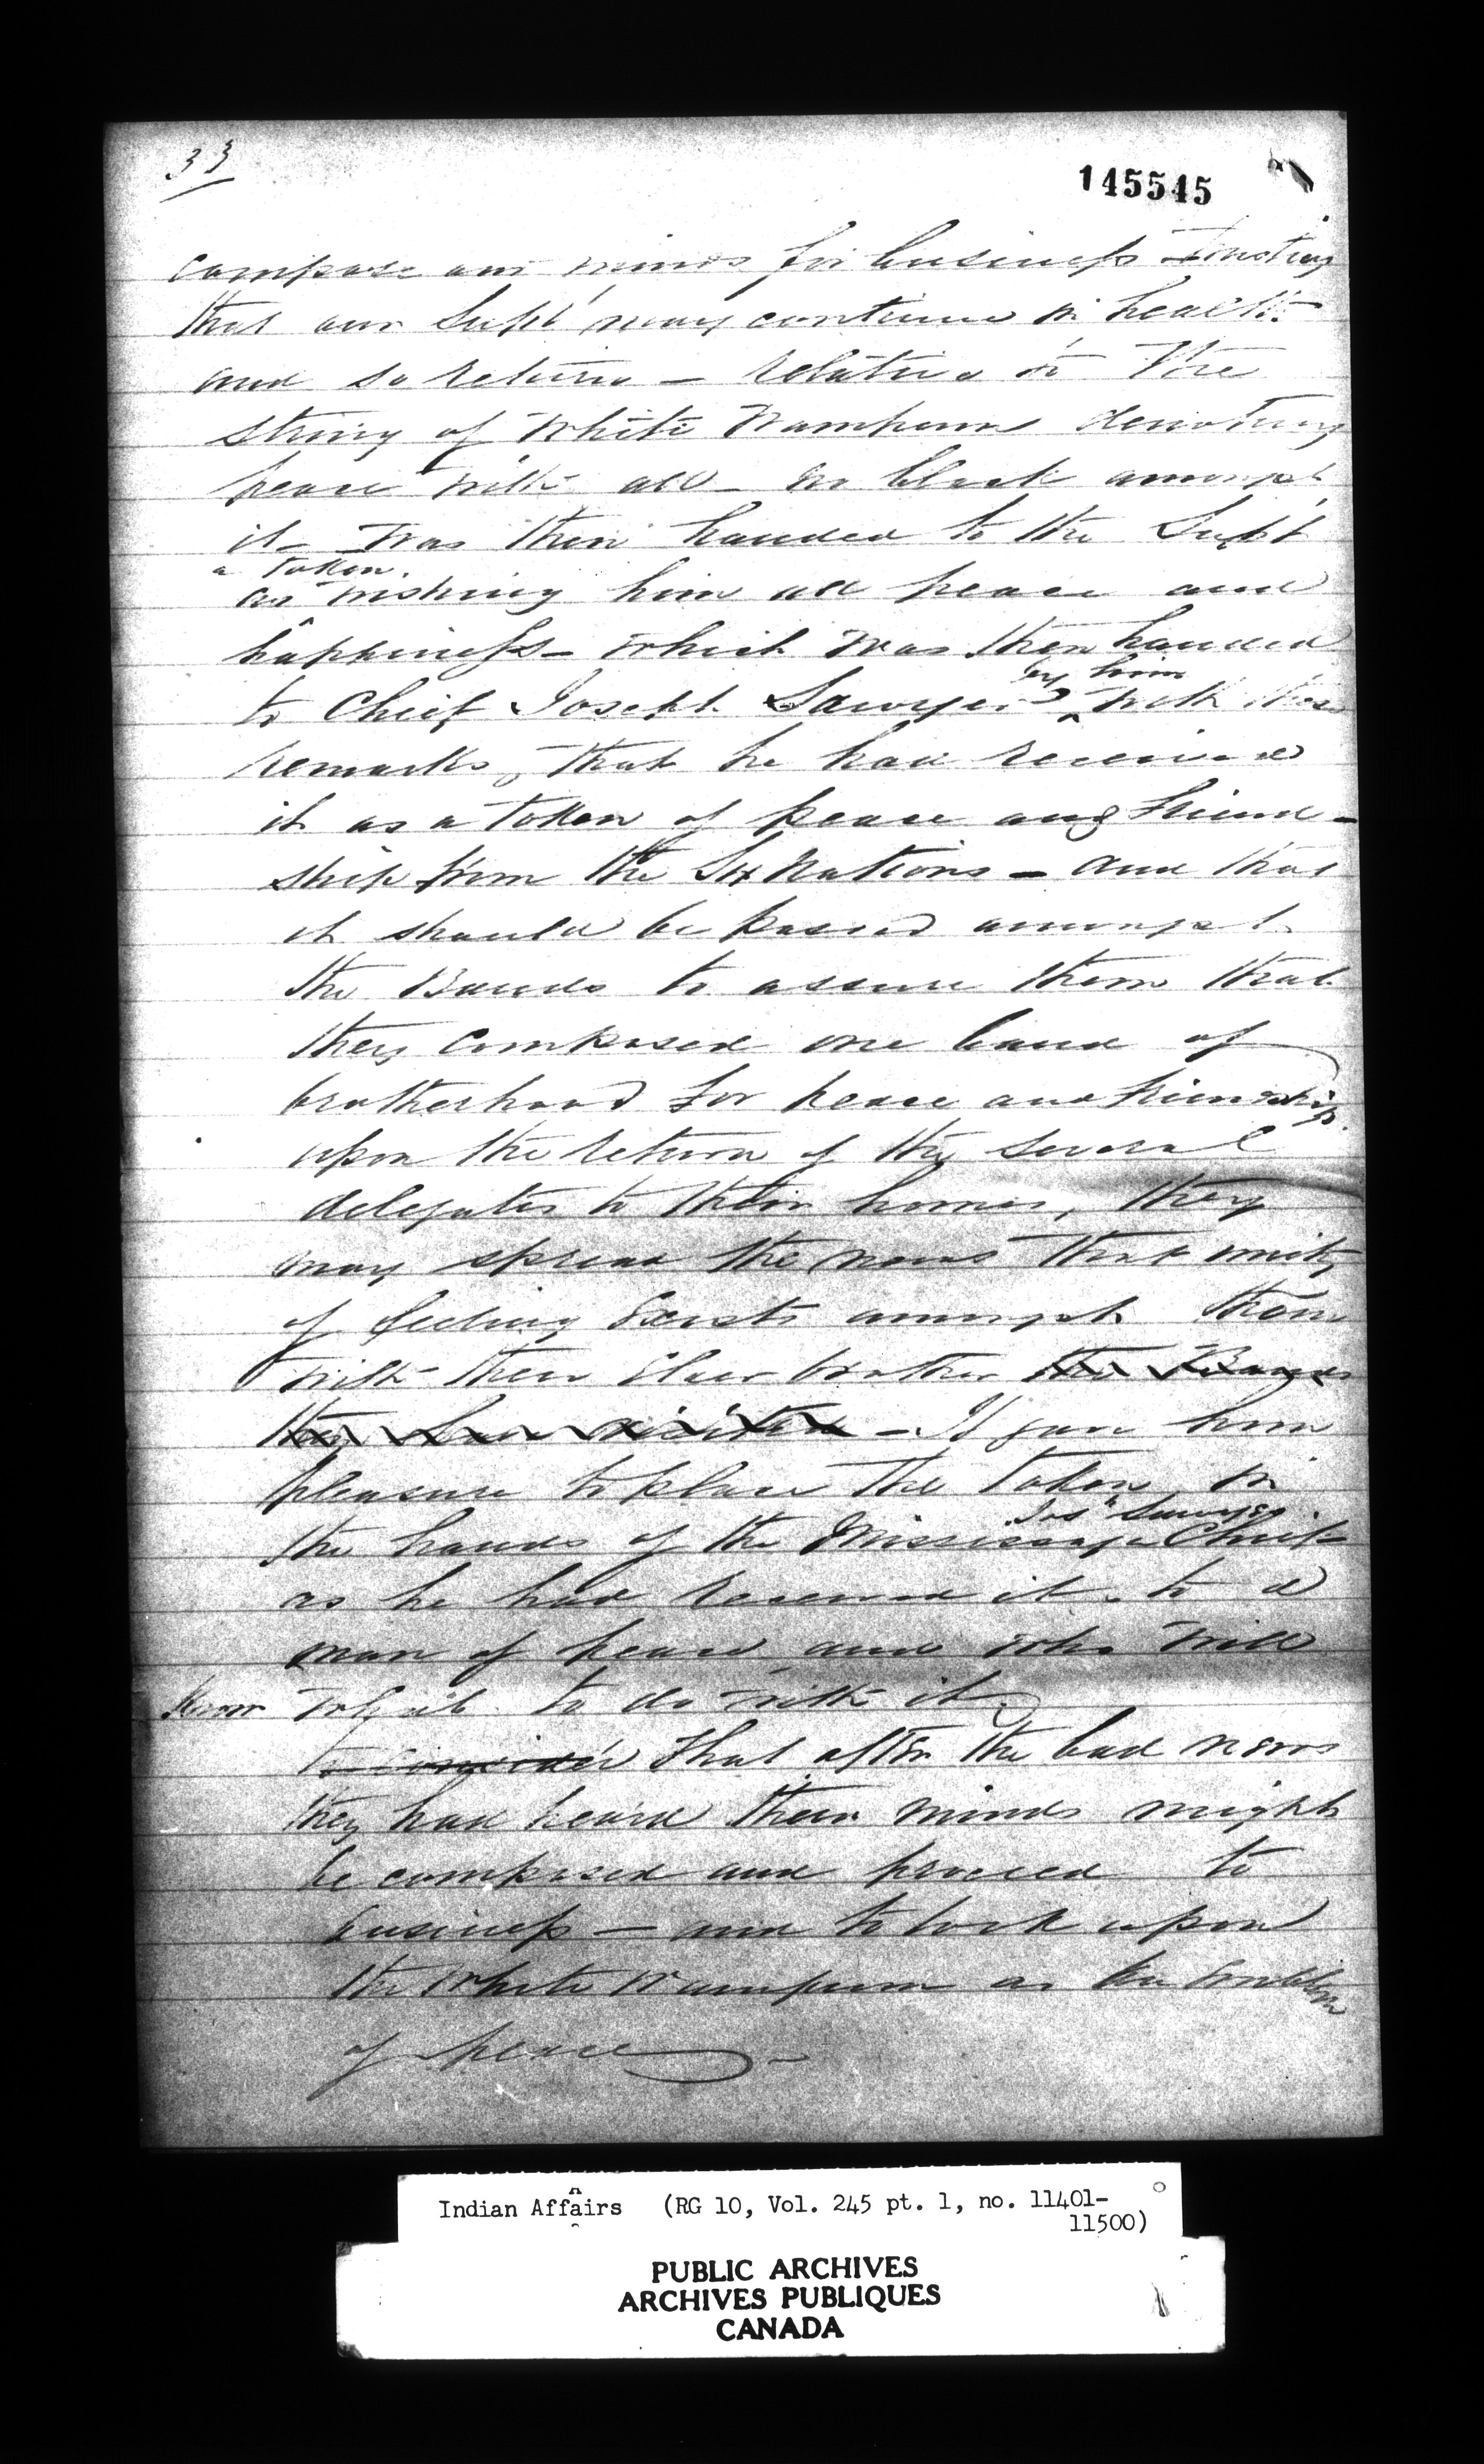 33
145545
compose our minds for business trusting
that our Supt may continue in health
and so return — relative to the
string of White Wampum denoting
peace with all — no black amongst
it — was then handed to the Supt
a token
as wishing him all peace and
happiness — which was then handed
by him
to Chief Joseph Sawyer with these
remarks, that he had received
it as a token of peace and Friend-
ship from the Six Nations — and that
it should be passed amongst
the Bands to assure them that
they composed one band of
brotherhood for peace and Friendship
upon the return of the several
delegates to their homes, they
may spread the news that unity
of feeling Exists amongst them
with their Elder brother the
the — It gave him
pleasure to place the token in
Josh Sawyer
the hands of the Mississaga Chief
as he had received it to a
man of peace and who will
know what to do with it
to consider that after the bad news
they had heard their minds might
be composed and proceed to
business — and to look upon
the White Wampum as the Emblem
of peace —
Indian Affairs (RG 10, Vol. 245 pt. 1, no. 11401-
11500)
PUBLIC ARCHIVES
ARCHIVES PUBLIQUES
CANADA